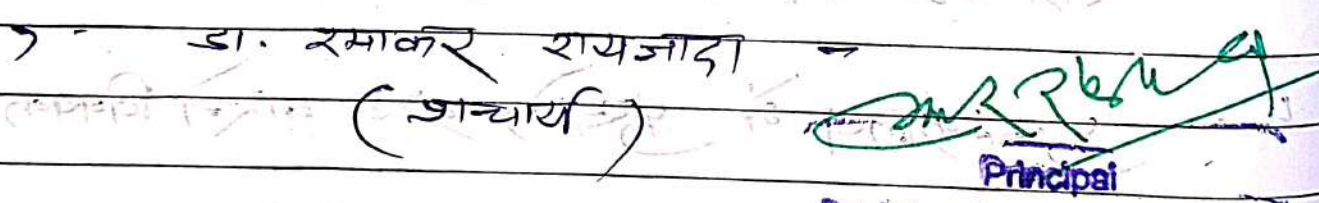 डा. रमाकर रायजादा -
(प्राचार्य)
Principal